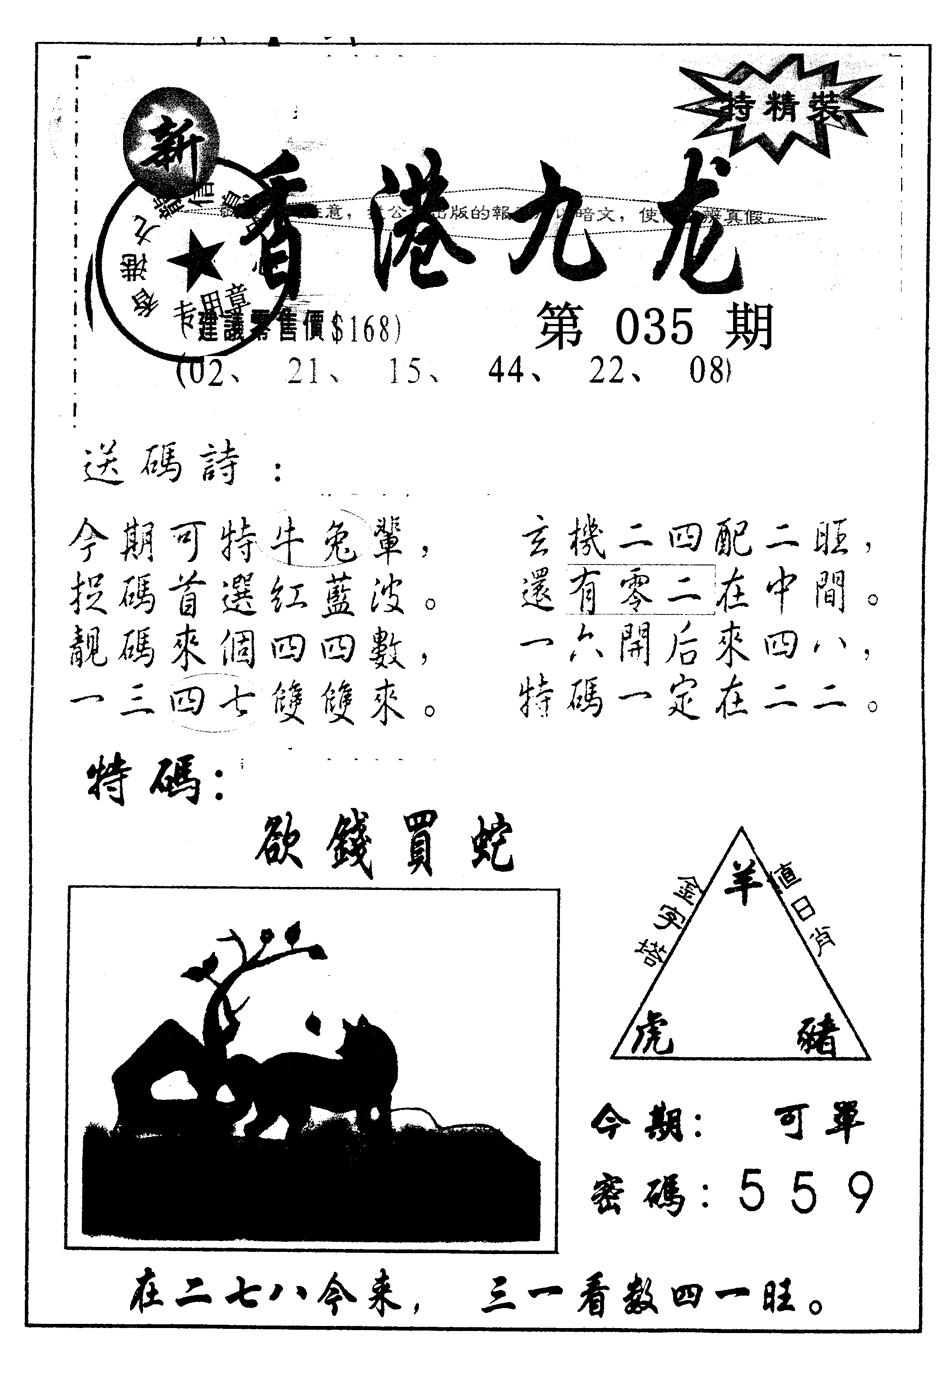 特精裝
新
香港九龙
专用章
(建議零售價$168)
第 035 期
(02、 21、 15、 44、 22、 08)
送碼詩：
今期可特牛兔輩，
捉碼首選紅藍波。
靚碼來個四四數，
一三四七雙雙來。
玄機二四配二旺，
還有零二在中間。
一六開后來四八，
特碼一定在二二。
特碼：
欲錢買蛇
金字塔
值日肖
羊
虎 豬
今期： 可單
密碼：559
在二七八今来， 三一看数四一旺。